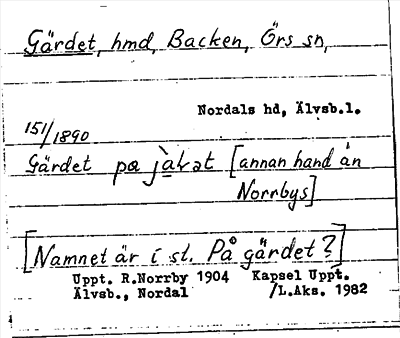 Gärdet, hmd, Backen, Örs sn,
Nordals hd, Älvsb.l.
151/1890
Gärdet pɑ [annan hand än
Norrbys]
[Namnet är i st. På gärdet?]
Uppt. R.Norrby 1904 Kapsel Uppt.
Älvsb., Nordal /L.Aks. 1982